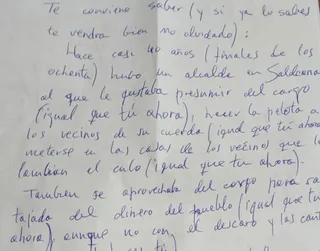 Te conviene saber (y si ya lo sabes
te vendra bien no olvidarlo):
Hace casi 40 años (finales de los
ochenta) hubo un alcalde en Saldeana
al que le gustaba presumir del cargo
(igual que tú ahora), hacer la pelota a
los vecinos de su cuerda (igual que tú ahora
meterse en las casas de los vecinos que le
lamian el culo (igual que tú ahora).
Tambien se aprovechaba del cargo para sa
tajada del dinero del pueblo (igual que tú
ahora), aunque no con el descaro y las cant